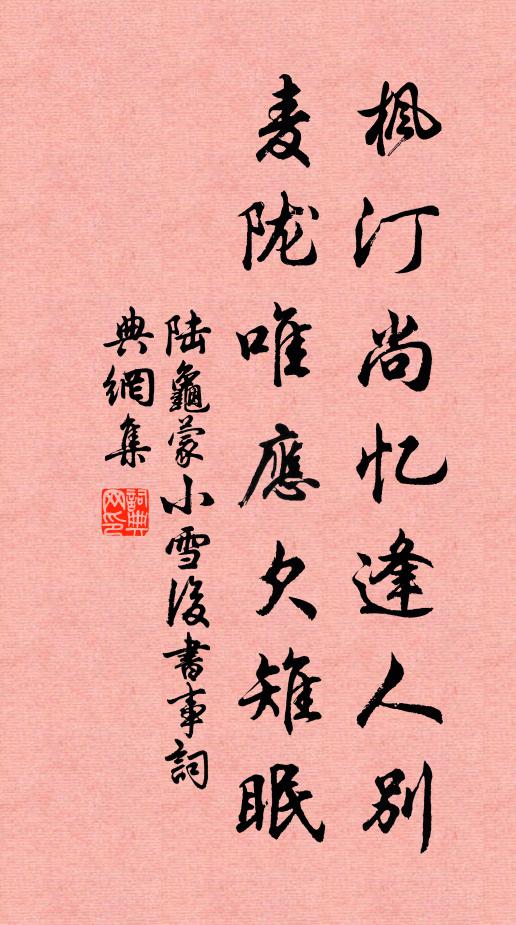 枫汀尚忆逢人别
麦陇唯應欠雉眠
陆龜蒙小雪後書事詞
典網集
詞典网印